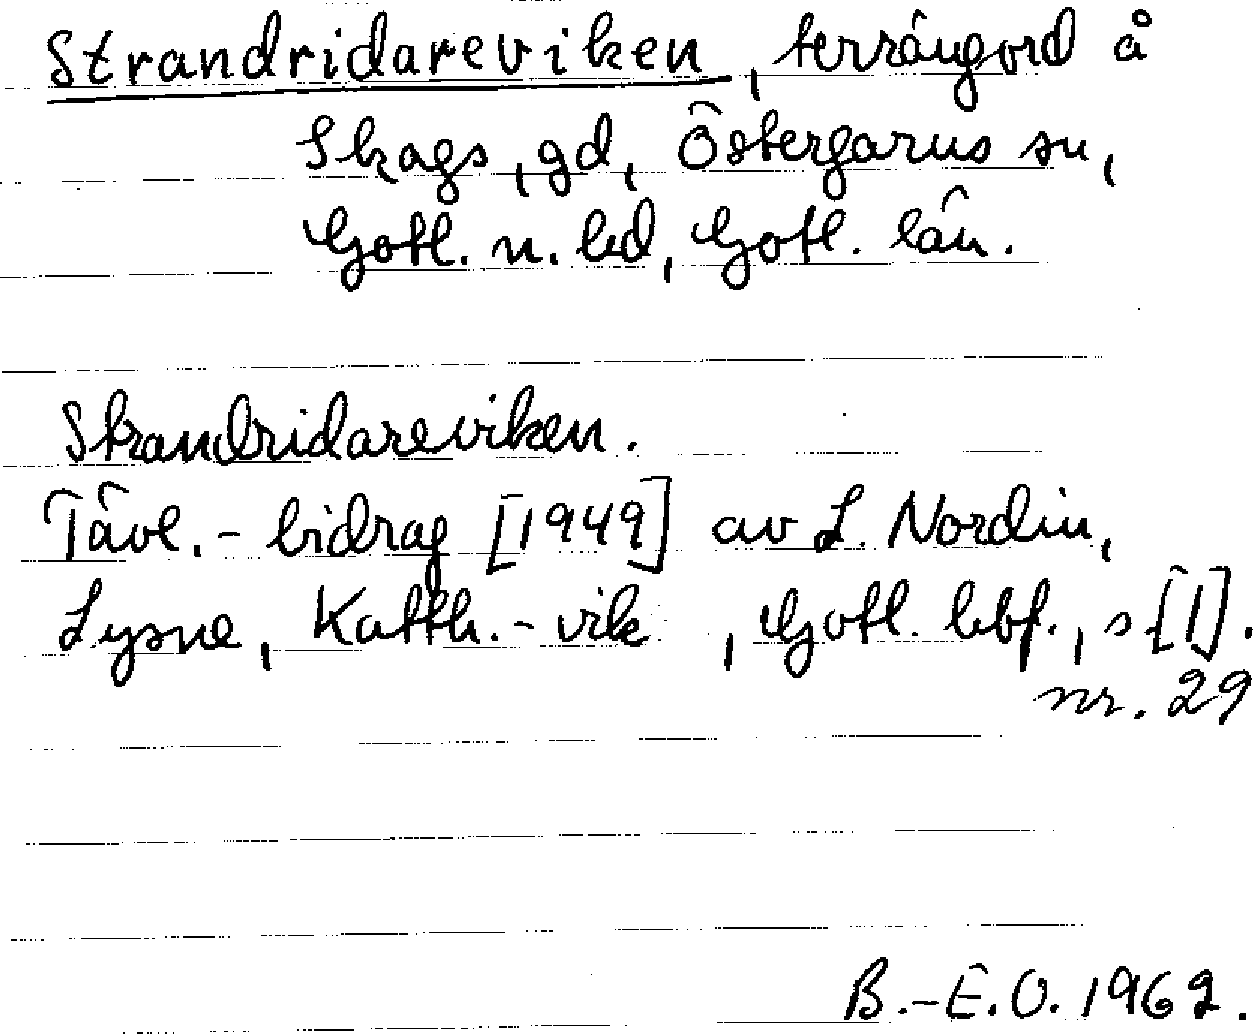 Strandridareviken, terrängord å
Skags, gd, Östergarns sn,
Gotl. n. hd, Gotl. län.
Strandridareviken.
Tävl.-bidrag [1949] av L. Nordin,
Lysne, Katth.-vik, Gotl. bbf., s [1].
nr. 29
B.-E.O. 1962.